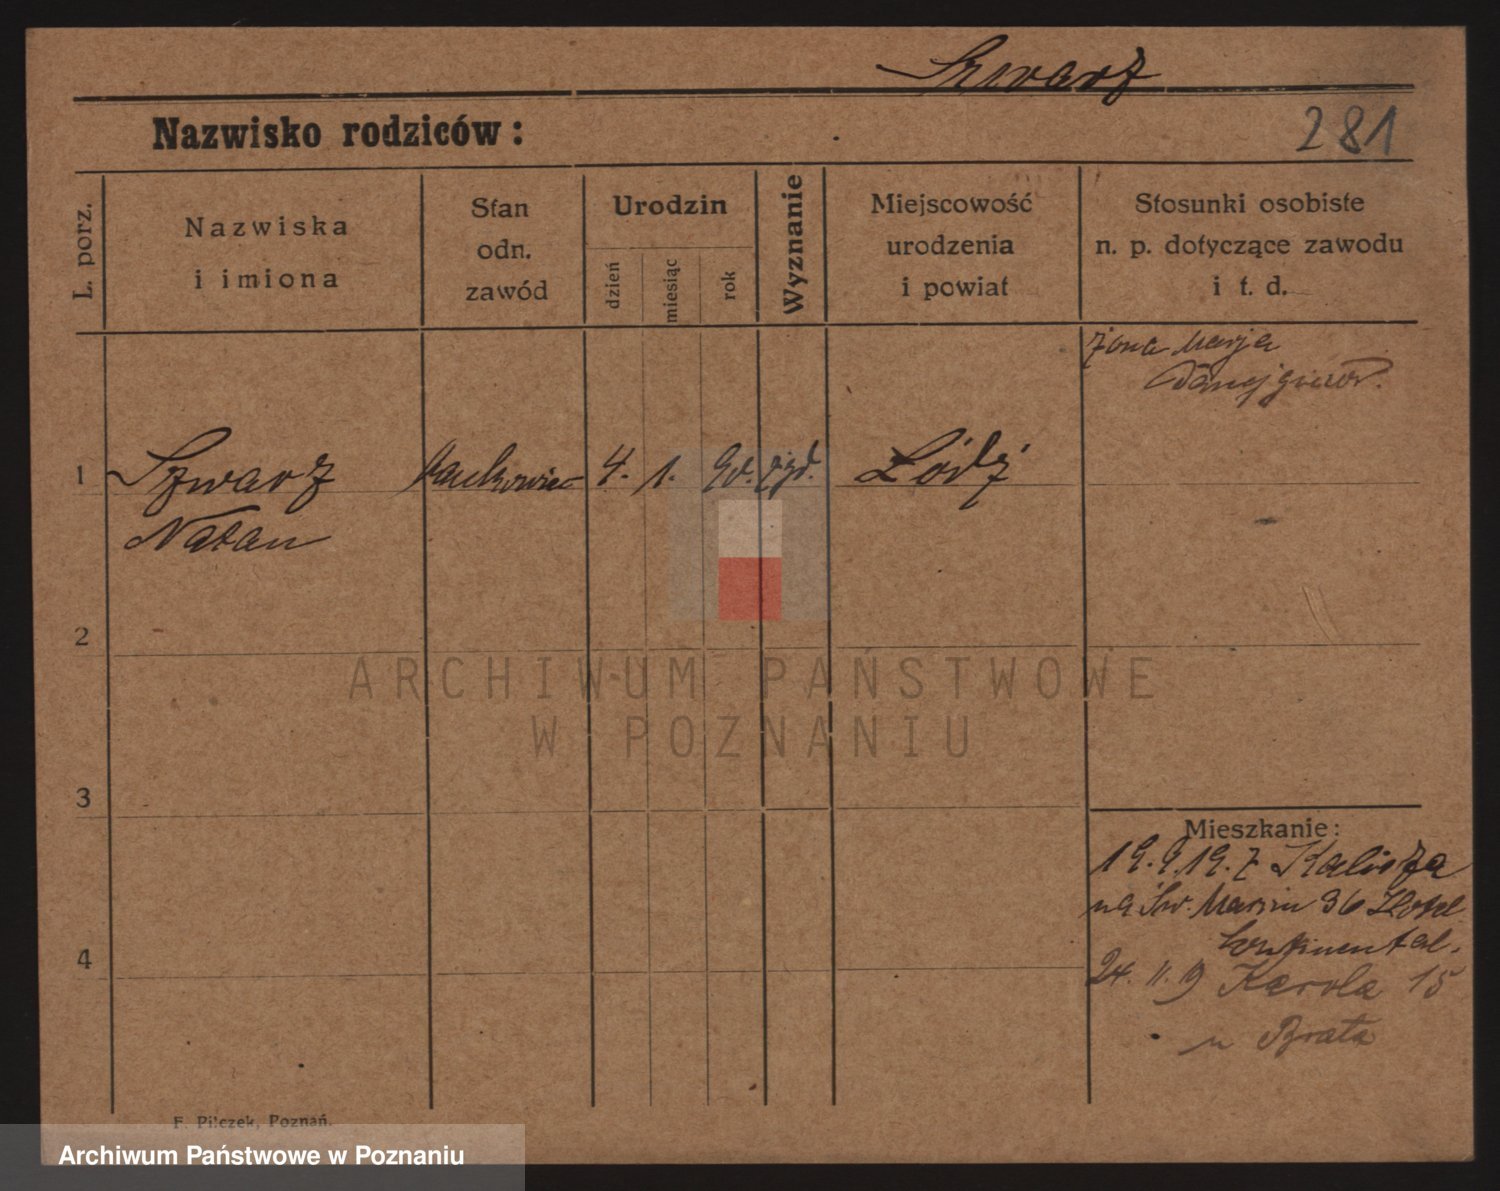 Szwarz
Nazwisko rodziców:
281
L. porz.
Nazwiska
i imiona
Stan
odn.
zawód
Urodzin
dzień
miesiąc
rok
Wyznanie
Miejscowość
urodzenia
i powiat
Stosunki osobiste
n. p. dotyczące zawodu
i t. d.
żona Marja
1
Szwarz
Natan
4. 1. 90. żyd.
Łódź
2
3
4
ARCHIWUM PAŃSTWOWE
W POZNANIU
Mieszkanie:
19.9.19. z Kalisza
na Św. Marcin 36 Hotel
Kontinental.
24. 11. 19 Karola 15
u Brata
F. Pilczek, Poznań.
Archiwum Państwowe w Poznaniu